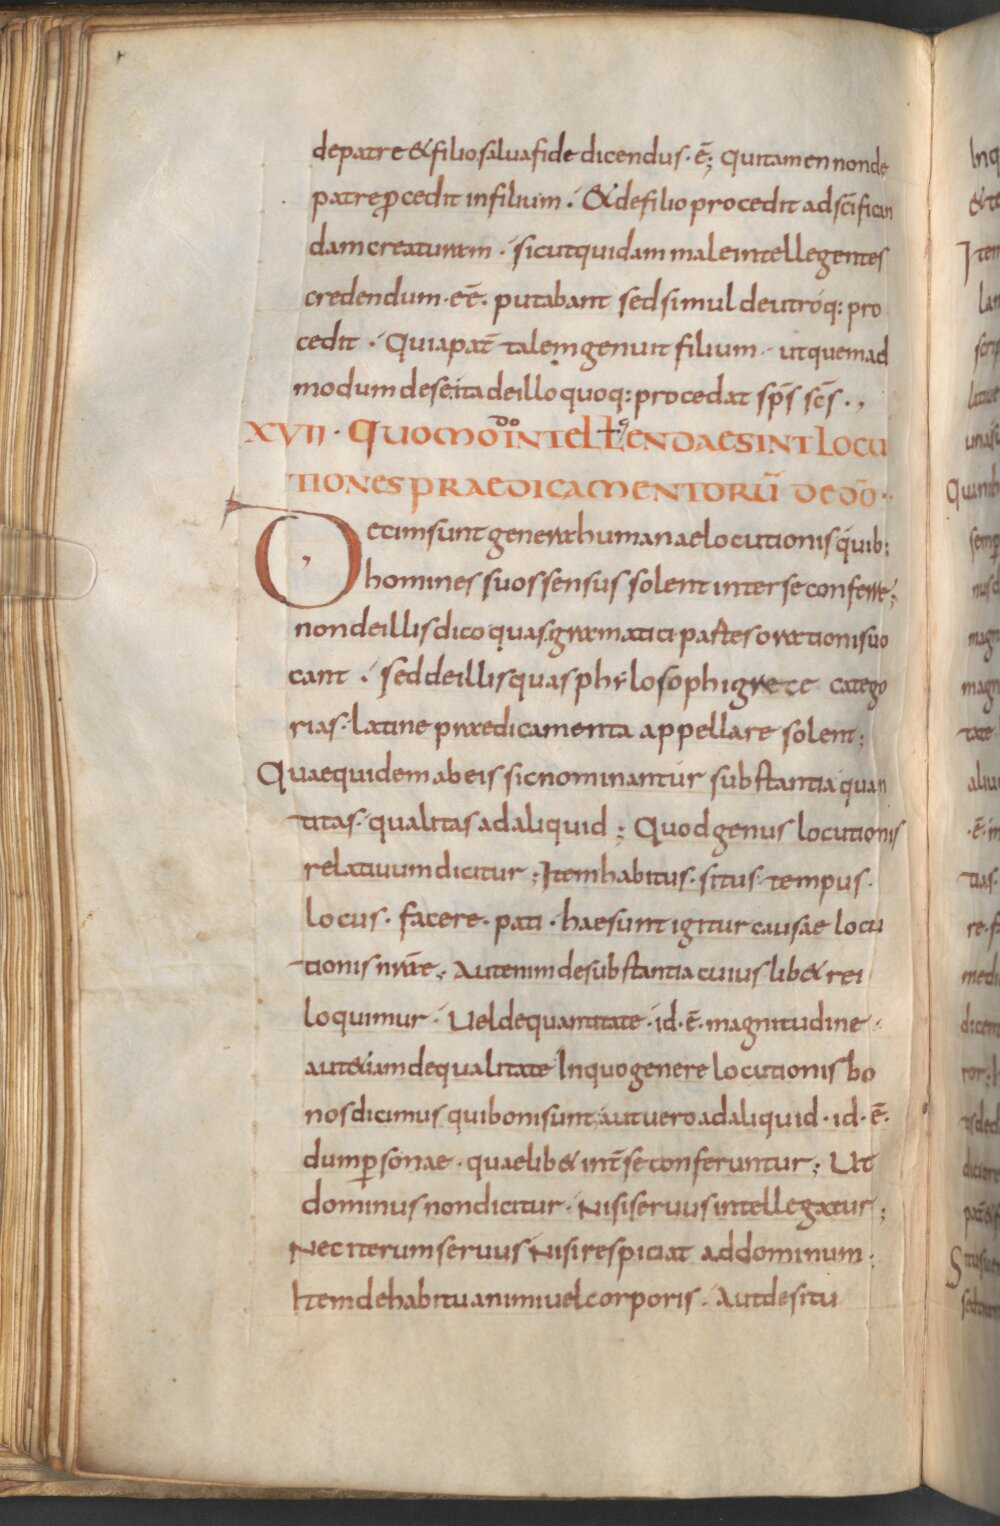 depatre &filiosaluafide dicendus· ē; quitamen nonde
patreꝓcedit infilium · &defilio procedit adscīfican
dam creaturam · sicutquidam maleintellegentes
credendum·eē· putabant sed simul deutroq: pro
cedit · Quiapat̄ talemgenuit filium · utquemad
modum deseita deillo quoq: procedat sp̄s sc̄s ·,
XVII · QUOMODO INTELLEGENDAE SINT LOCU
TIONES PRAEDICAMENTORŪ DE DŌ ·
Decim sunt genera humanae locutionis quib:
homines suos sensus solent inter se conferre;
non deillis dico quas grammatici partes orationis uo
cant · sed deillis quas phylosophi grece catego
rias · latine praedicamenta appellare solent;
Quaequidem ab eis sic nominantur substantia quan
titas · qualitas ad aliquid ; Quod genus locutionis
relatiuum dicitur ; Item habitus · situs · tempus ·
locus · facere · pati · hae sunt igitur causae locu
tionis nr̄ae ; Aut enim de substantia cuius lib& rei
loquimur · Uel de quantitate · id · ē · magnitudine ·
aut&iam de qualitate In quo genere locutionis bo
nos dicimus qui boni sunt aut uero ad aliquid · id · ē ·
dum ꝑsonae · quaelib& int̄ se conferuntur ; Ut
dominus non dicitur · Nisi seruus intellegatur ;
Nec iterum seruus Nisi respiciat ad dominum ·
Item de habitu animi uel corporis · Aut de situ